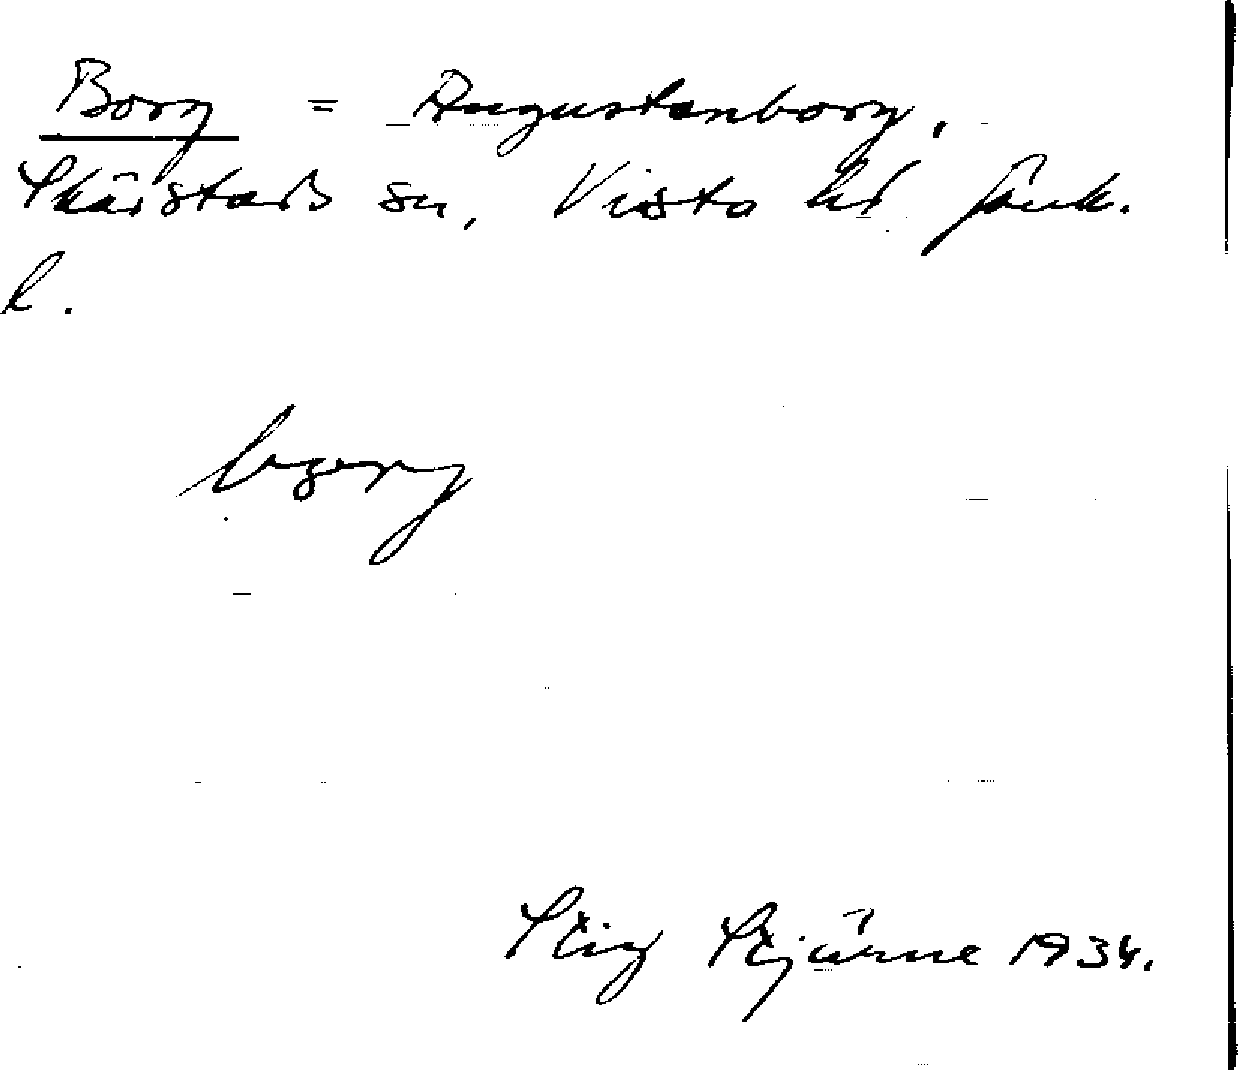 Borg = Augustenborg,
Skärstads sn, Vista hd Jönk.
l.
bɔrj
Stig Stjärne 1934.